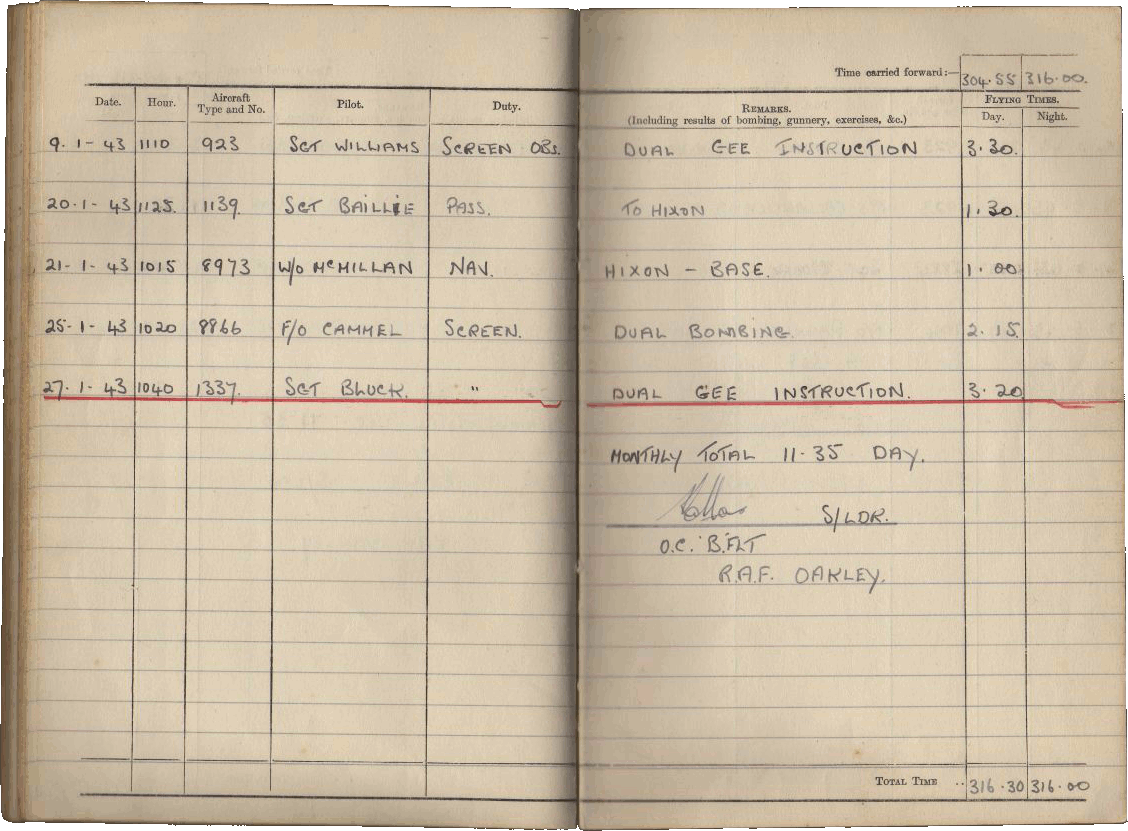 Time carried forward:— 304.55 316.00.
Date. Hour. Aircraft Type and No. Pilot. Duty. REMARKS. (Including results of bombing, gunnery, exercises, &c.) FLYING TIMES. Day. Night.
9. 1 - 43 1110 923 SGT WILLIAMS SCREEN OBS. DUAL GEE INSTRUCTION 3.30.
20. 1 - 43 1125. 1139. SGT BAILLIE PASS. TO HIXON 1.30.
21 - 1 - 43 1015 8973 W/O McMILLAN NAV. HIXON - BASE. 1.00
25 - 1 - 43 1020 8866 F/O CAMMEL SCREEN. DUAL BOMBING. 2.15.
27. 1 - 43 1040 1337. SGT BLUCK. " DUAL GEE INSTRUCTION. 3.20
MONTHLY TOTAL 11-35 DAY.
S/LDR.
O.C. 'B'.FLT
R.A.F. OAKLEY.
TOTAL TIME .. 316.30 316.00